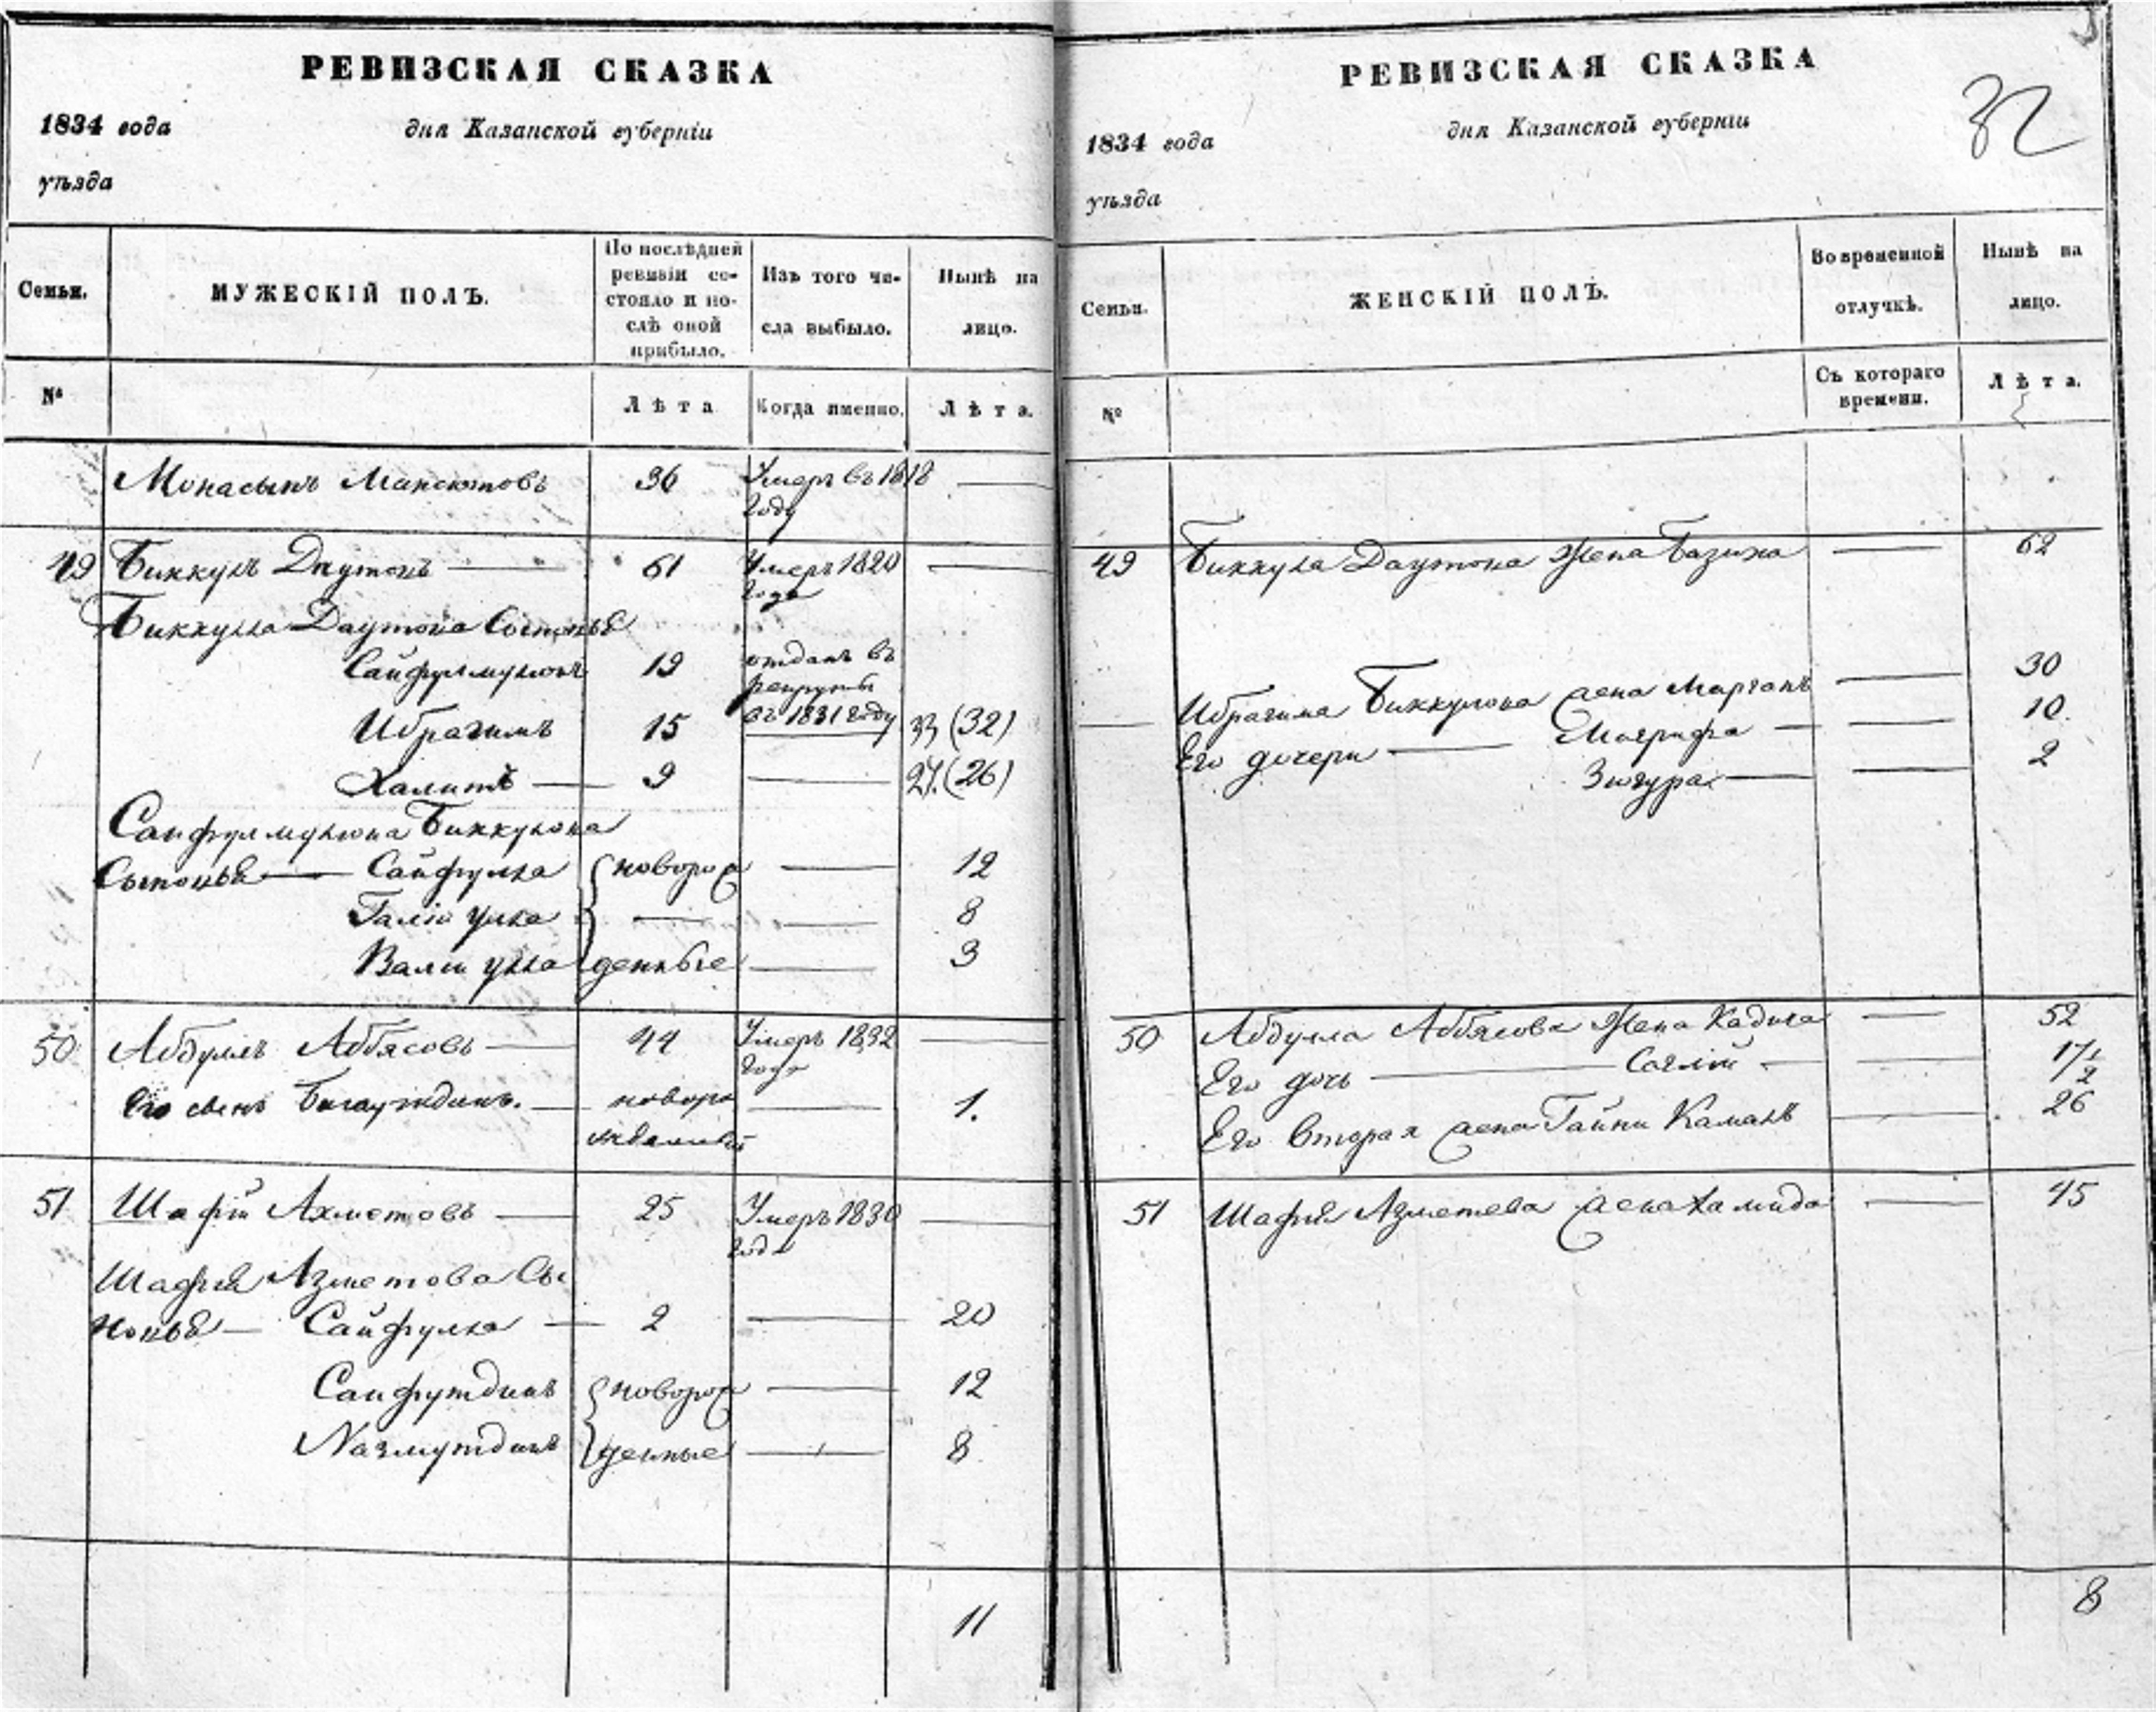 РЕВИЗСКАЯ СКАЗКА
1834 года
дня Казанской губерніи
уѣзда
Семьи.
МУЖЕСКІЙ ПОЛЪ.
По послѣдней
ревизіи со-
стояло и по-
слѣ оной
прибыло.
Изъ того чи-
сла выбыло.
Нынѣ на
лицо.
№
Лѣта
Когда именно.
Лѣта.
Монасыпъ Мансютовъ 36 Умеръ въ 1818 —
году
49 Биккулъ Даутовъ — 61 Умеръ 1820 —
года
Биккула Даутова Сыновья
Сайфулмулюкъ 19 отданъ въ
рекруты
въ 1831 году
Ибрагимъ 15 33 (32)
Халитъ — 9 — 27. (26)
Сайфулмулюка Биккулова
Сыновья — Сайфулла новорож — 12
Галіулла — — 8
Валиулла денные — 3
50 Абдулъ Аббясовъ — 44 Умеръ 1832 —
года
Его сынъ Багаутдинъ. — новоро — 1.
51 Шафій Ахметовъ — 25 Умеръ 1830 —
года
Шафія Ахметова Сы
новья — Сайфулла — 2 — 20
Сайфутдинъ новорож — 12
Назмутдинъ денные — 8
11
РЕВИЗСКАЯ СКАЗКА
32
1834 года
дня Казанской губерніи
уѣзда
Семьи.
ЖЕНСКІЙ ПОЛЪ.
Во временной
отлучкѣ.
Нынѣ на
лицо.
№
Съ котораго
времени.
Лѣта.
49 Биккула Даутова Жена Базиха — 62
— Ибрагима Биккулова жена Марганъ — 30
Его дочери — Магрифа — — 10
Зюгура — — 2
50 Абдулла Аббясова Жена Кадига — 52
Его дочь — — 17 1/2
Его вторая жена Гайни Камалъ — 26
51 Шафія Ахметева жена Хамида — 45
8